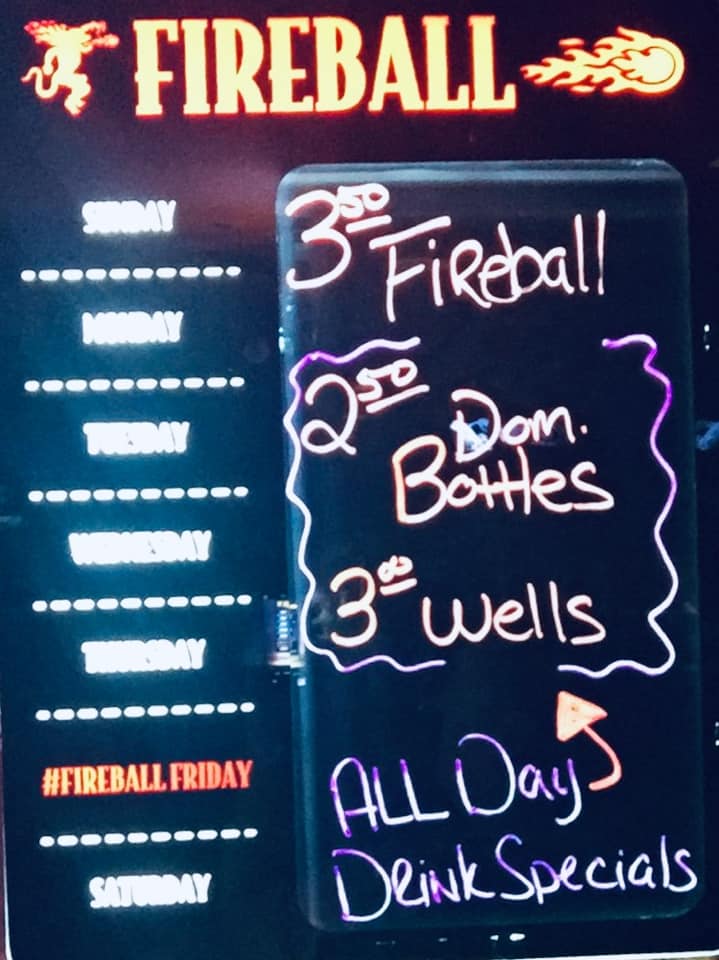 FIREBALL
SUNDAY
MONDAY
TUESDAY
WEDNESDAY
THURSDAY
#FIREBALL FRIDAY
SATURDAY
3.50 Fireball
2.50 Dom.
Bottles
3.00 Wells
ALL Day
Drink Specials